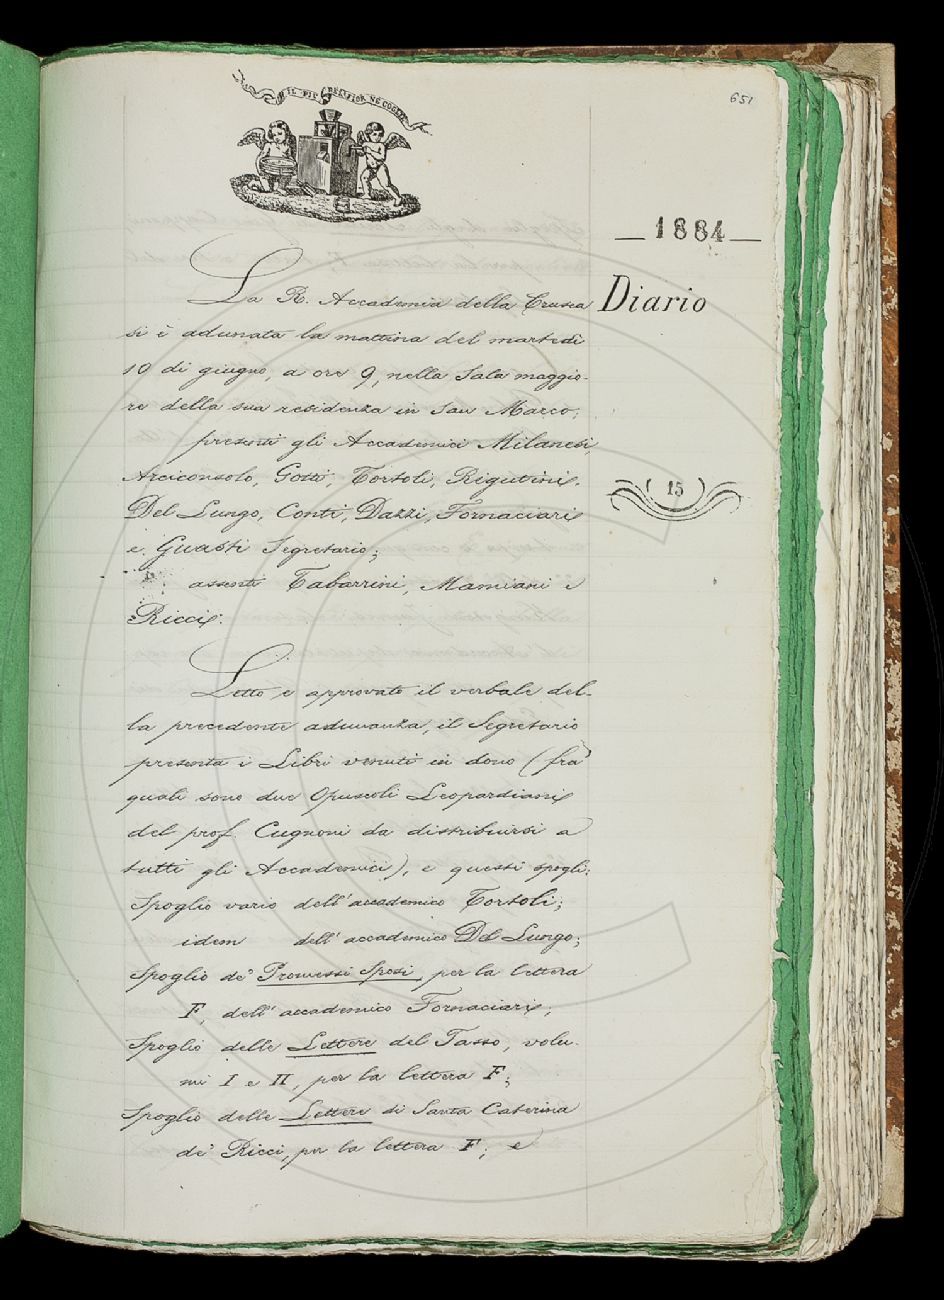 IL PIÙ BEL FIOR NE COGLIE
651
— 1884 —
Diario
La R. Accademia della Crusca
si è adunata la mattina del martedì
10 di giugno, a ore 9, nella Sala maggio-
re della sua residenza in San Marco;
presenti gli Accademici Milanesi,
Arciconsolo, Gotti, Tortoli, Rigutini,
Del Lungo, Conti, Dazzi, Fornaciari
e Guasti Segretario;
assenti Tabarrini, Mamiani e
Ricci.
( 15 )
Letto e approvato il verbale del-
la precedente adunanza, il Segretario
presenta i Libri venuti in dono (fra'
quali sono due Opuscoli Leopardiani
del prof. Cugnoni da distribuirsi a
tutti gli Accademici), e questi spogli:
Spoglio vario dell'accademico Tortoli;
idem dell'accademico Del Lungo;
Spoglio de' Promessi Sposi, per la lettera
F, dell'accademico Fornaciari;
Spoglio delle Lettere del Tasso, volu-
mi I e II, per la lettera F;
Spoglio delle Lettere di Santa Caterina
de' Ricci, per la lettera F; e